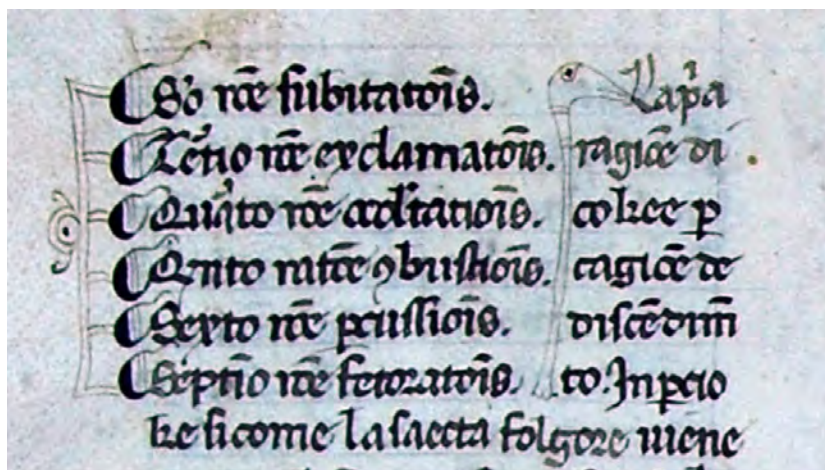 So rōe subitatōis.
Tertio rōe exclamatōis.
Quarto rōe
Qnto ratōe ꝯbustiōis.
Sexto rōe ꝑcussiōis.
Septīo rōe fetoratōis.
La pͥa
ragiōe di
co kee ꝑ
ragiōe de
discēdim
to. In ꝑcio
ke sicome la saecta folgore uiene